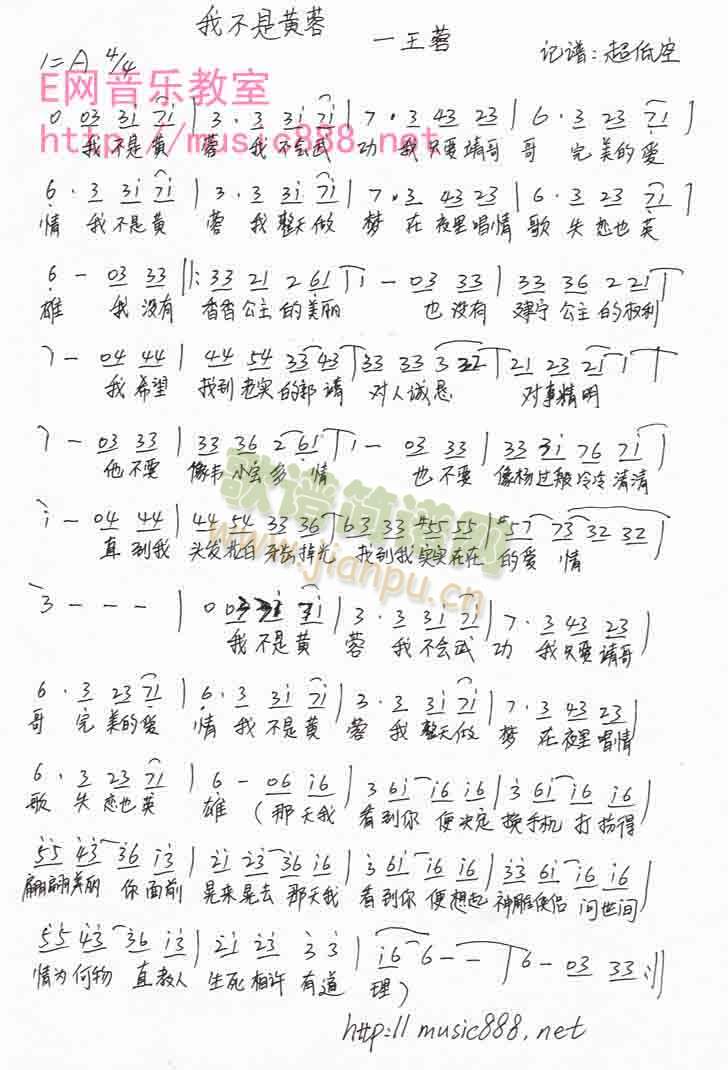 我不是黄蓉
—王蓉
记谱:超低空
1=A 4/4
E网音乐教室
http://music888.net
0 03 3i 7i | 3· 3 3i 7i | 7· 3 43 23 | 6· 3 23 7i |
我不是黄 蓉 我不会武 功 我只要请哥 哥 完美的爱
6· 3 3i 7i | 3· 3 3i 7i | 7· 3 43 23 | 6· 3 23 7i |
情 我不是黄 蓉 我整天做 梦 在夜里唱情 歌 失恋也英
6 - 03 33 ‖: 33 21 2 61 | 1 - 03 33 | 33 36 2 21 |
雄 我没有 香香公主的美丽 也没有 建宁公主的权利
1 - 04 44 | 44 54 33 43 | 33 33 3 22 | 21 23 21 1 |
我希望 找到老实的郭靖 对人诚恳 对事精明
1 - 03 33 | 33 36 2 61 | 1 - 03 33 | 33 3i 76 7i |
他不要 像韦小宝多情 也不要 像杨过般冷冷清清
i - 04 44 | 44 54 33 36 | 63 33 #55 55 | #57 73 32 32 |
直到我 头发花白牙齿掉光 找到我实实在在 的爱情
3 - - - | 0 03 3i 7i | 3· 3 3i 7i | 7· 3 43 23 |
我不是黄 蓉 我不会武 功 我只要请哥
6· 3 23 7i | 6· 3 3i 7i | 3· 3 3i 7i | 7· 3 43 23 |
哥 完美的爱 情 我不是黄 蓉 我整天做 梦 在夜里唱情
6· 3 23 7i | 6 - 06 i6 | 3 6i i6 i6 | 3 6i i6 i6 |
歌 失恋也英 雄 (那天我 看到你 便决定 换手机 打扮得
55 43 36 i3 | 2i 23 36 i6 | 3 6i i6 i6 | 33 6i i6 i6 |
翩翩美丽 你面前 晃来晃去 那天我 看到你 便想起 神雕侠侣 问世间
55 43 36 i3 | 2i 23 3 3 | i6 6 - - | 6 - 03 33 :‖
情为何物 直教人 生死相许 有道 理)
http://music888.net
歌谱简谱网
www.jianpu.cn